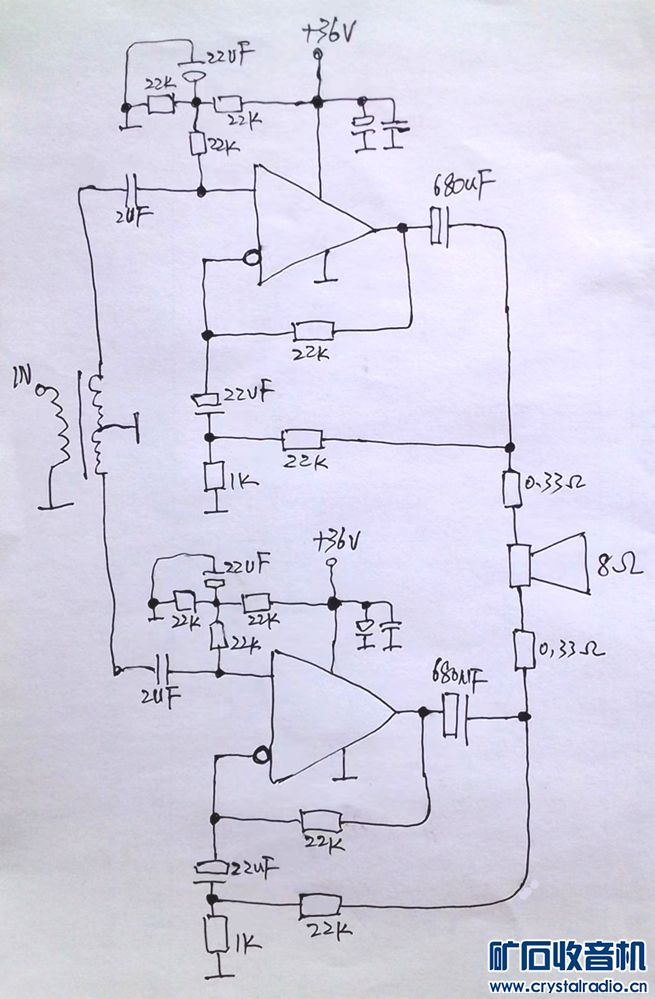 +36V
22UF
22K
22K
22K
2UF
680UF
22K
IN
22UF
22K
1K
0.33Ω
8Ω
0.33Ω
+36V
22UF
22K
22K
22K
2UF
680UF
22K
22UF
22K
1K
矿石收音机
www.crystalradio.cn